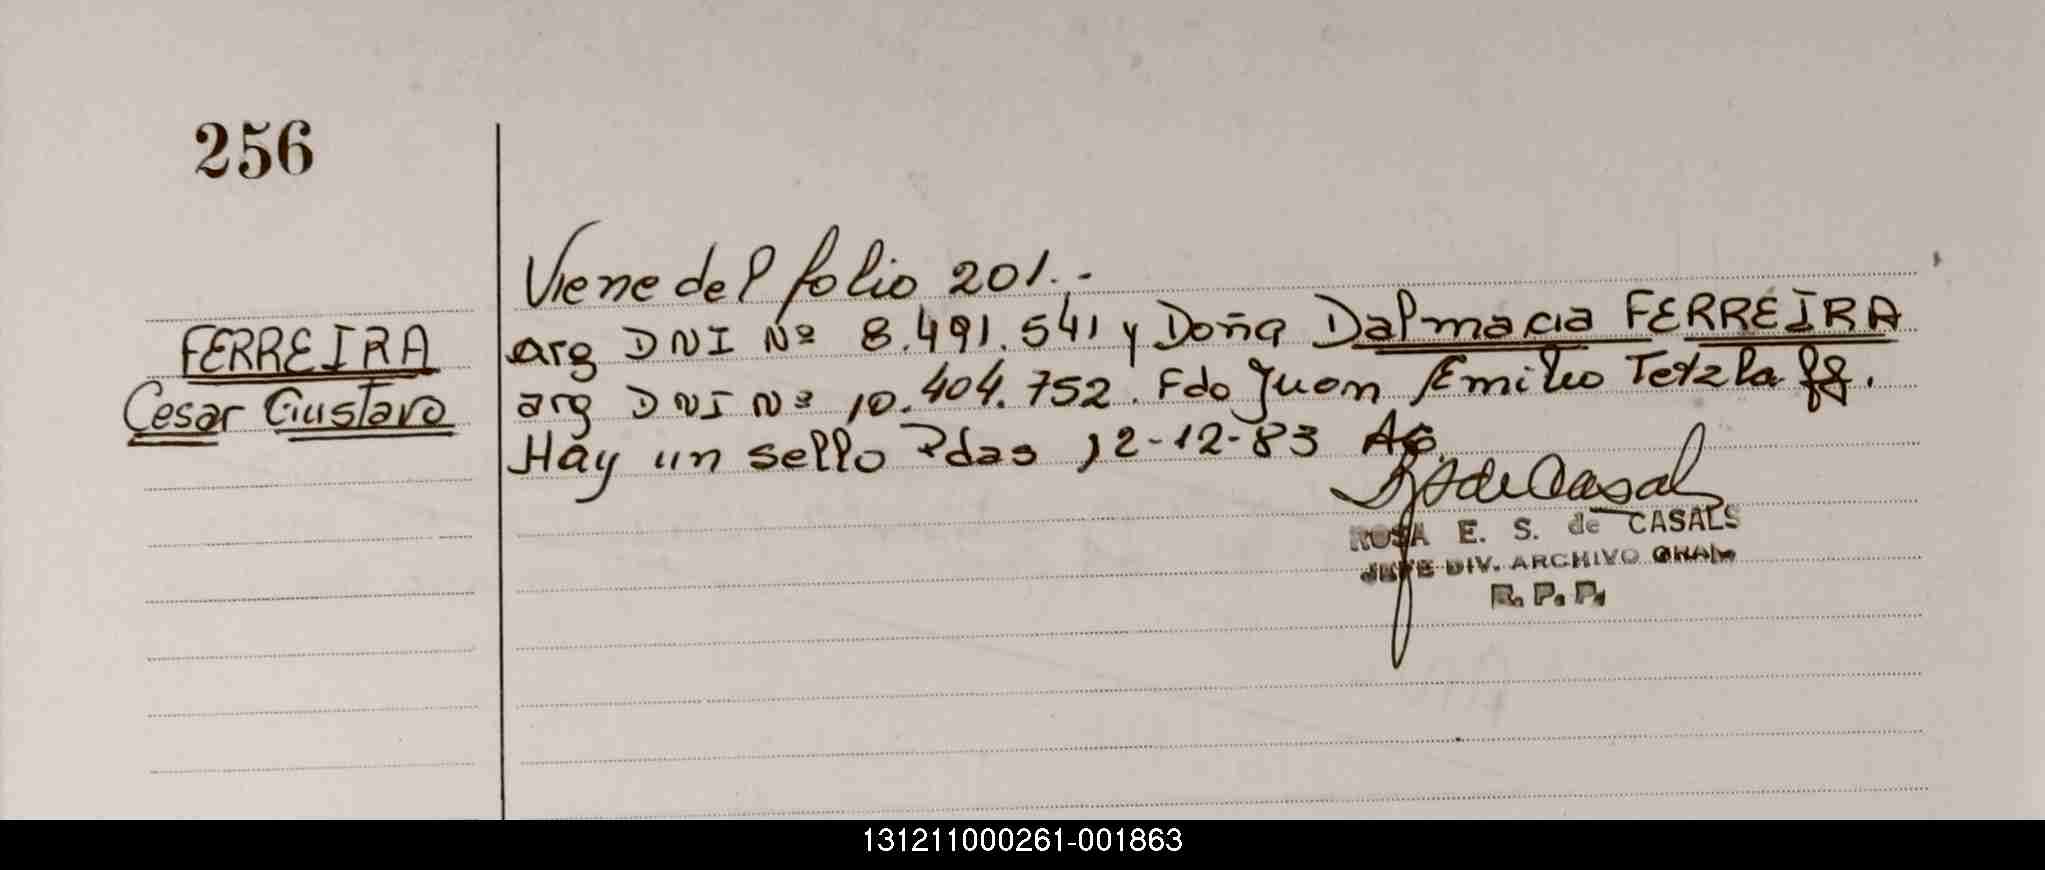 256
Viene del folio 201.-
FERREIRA
Cesar Gustavo
arg DNI Nº 8.491.541 y Doña Dalmacia FERREIRA
arg DNI Nº 10.404.752. Fdo Juan Emilio Tetzlaff.
Hay un sello Pdas 12-12-83
de Casals
ROSA E. S. de CASALS
JEFE DIV. ARCHIVO GRAL
R. P. P.
131211000261-001863